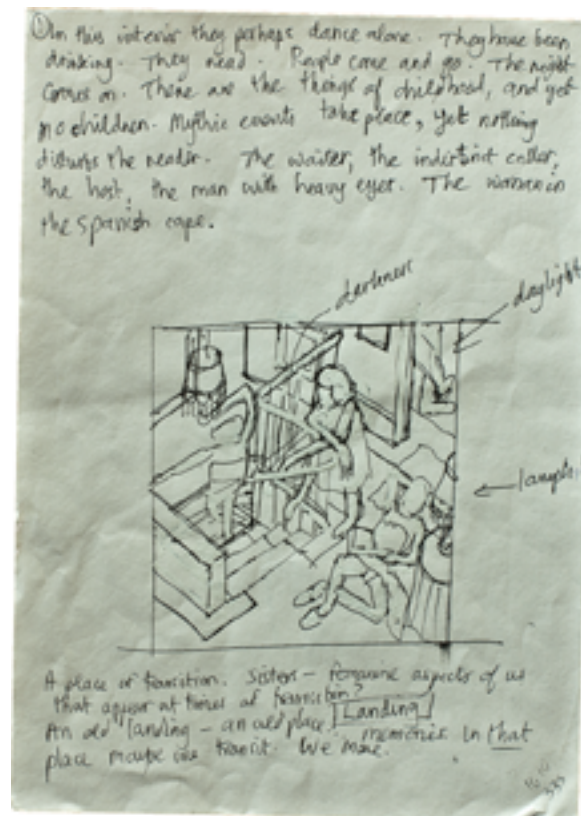 ① In this interior they perhaps dance alone. They have been
drinking. They read. People come and go. The night
comes on. There are the things of childhood, and yet
no children. Mythic events take place, yet nothing
disturbs the reader. The waiter, the indistinct caller,
the host, the man with heavy eyes. The woman in
the Spanish cape.
darkness
daylight
A place of transition. Sisters – feminine aspects of us
that appear at times of transition?
Landing
An old 'landing' – an old place. memories in that
place maybe in transit. We move.